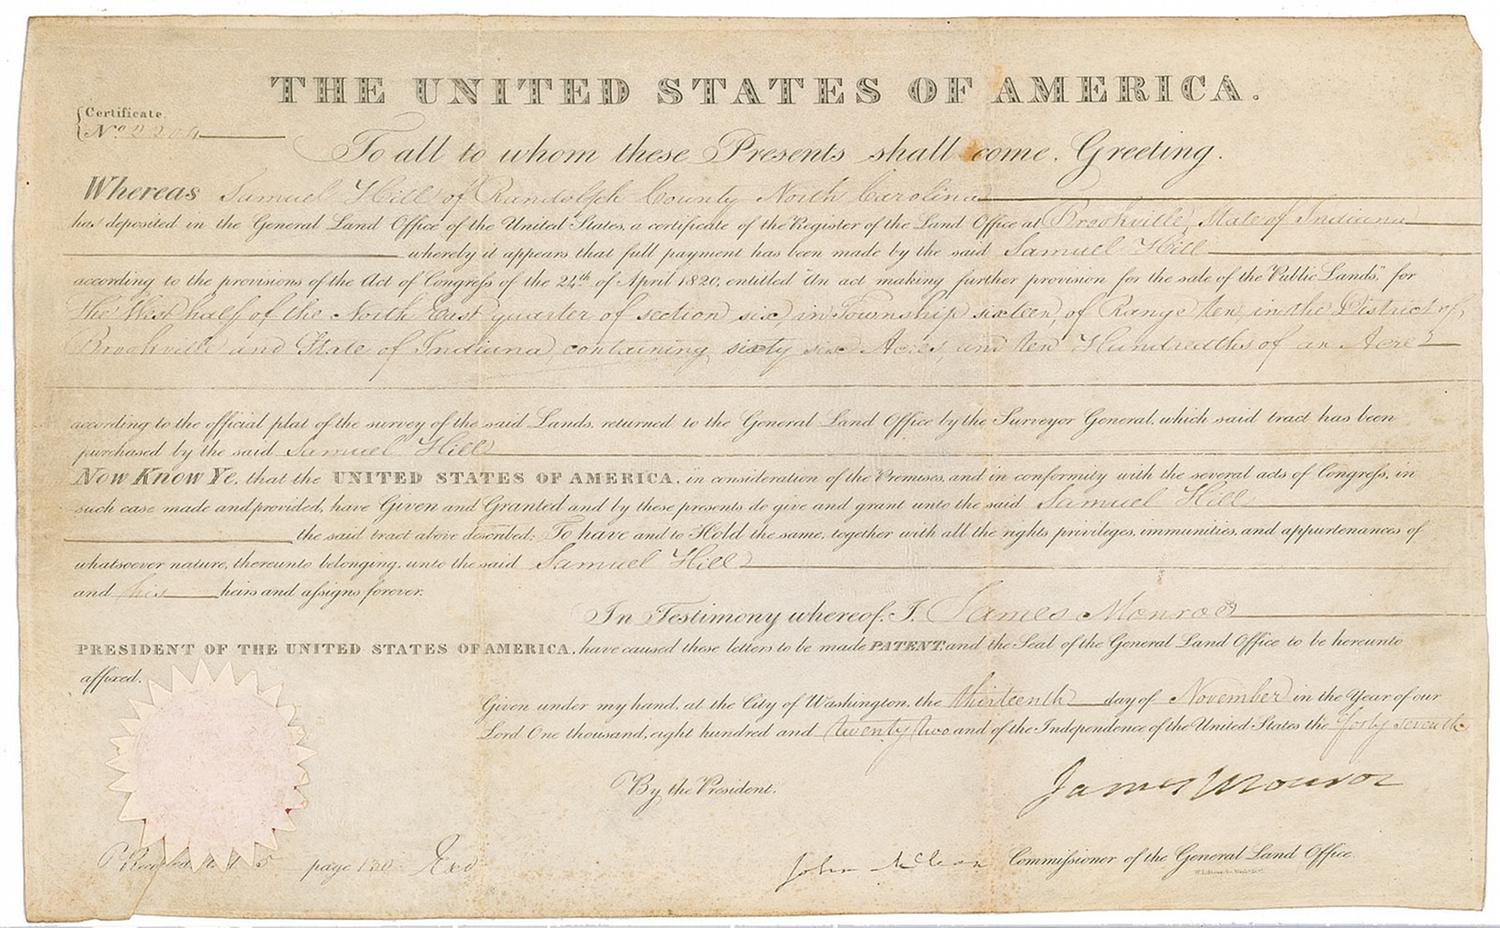 THE UNITED STATES OF AMERICA.
Certificate.
No
To all to whom these Presents shall come, Greeting.
Whereas Samuel Hill of Randolph County North Carolina
has deposited in the General Land Office of the United States, a certificate of the Register of the Land Office at Brookville, State of Indiana
whereby it appears that full payment has been made by the said Samuel Hill
according to the provisions of the Act of Congress of the 24th of April 1820, entitled "An act making further provision for the sale of the Public Lands," for
The West half of the North East quarter of section six, in Township sixteen, of Range ten, in the District of
Brookville and State of Indiana, containing sixty six Acres, and ten Hundredths of an Acre
according to the official plat of the survey of the said Lands, returned to the General Land Office by the Surveyor General, which said tract has been
purchased by the said Samuel Hill
Now Know Ye, that the UNITED STATES OF AMERICA, in consideration of the Premises, and in conformity with the several acts of Congress, in
such case made and provided, have Given and Granted and by these presents do give and grant unto the said Samuel Hill
the said tract above described: To have and to Hold the same, together with all the rights, privileges, immunities, and appurtenances of
whatsoever nature, thereunto belonging, unto the said Samuel Hill
and his heirs and assigns forever.
In Testimony whereof, I, James Monroe
PRESIDENT OF THE UNITED STATES OF AMERICA, have caused these letters to be made PATENT, and the Seal of the General Land Office to be hereunto
affixed.
Given under my hand, at the City of Washington, the thirteenth day of November in the Year of our
Lord One thousand, eight hundred and twenty two and of the Independence of the United States the forty seventh
By the President,
James Monroe
Recorded 5 page 130
John McLean Commissioner of the General Land Office.